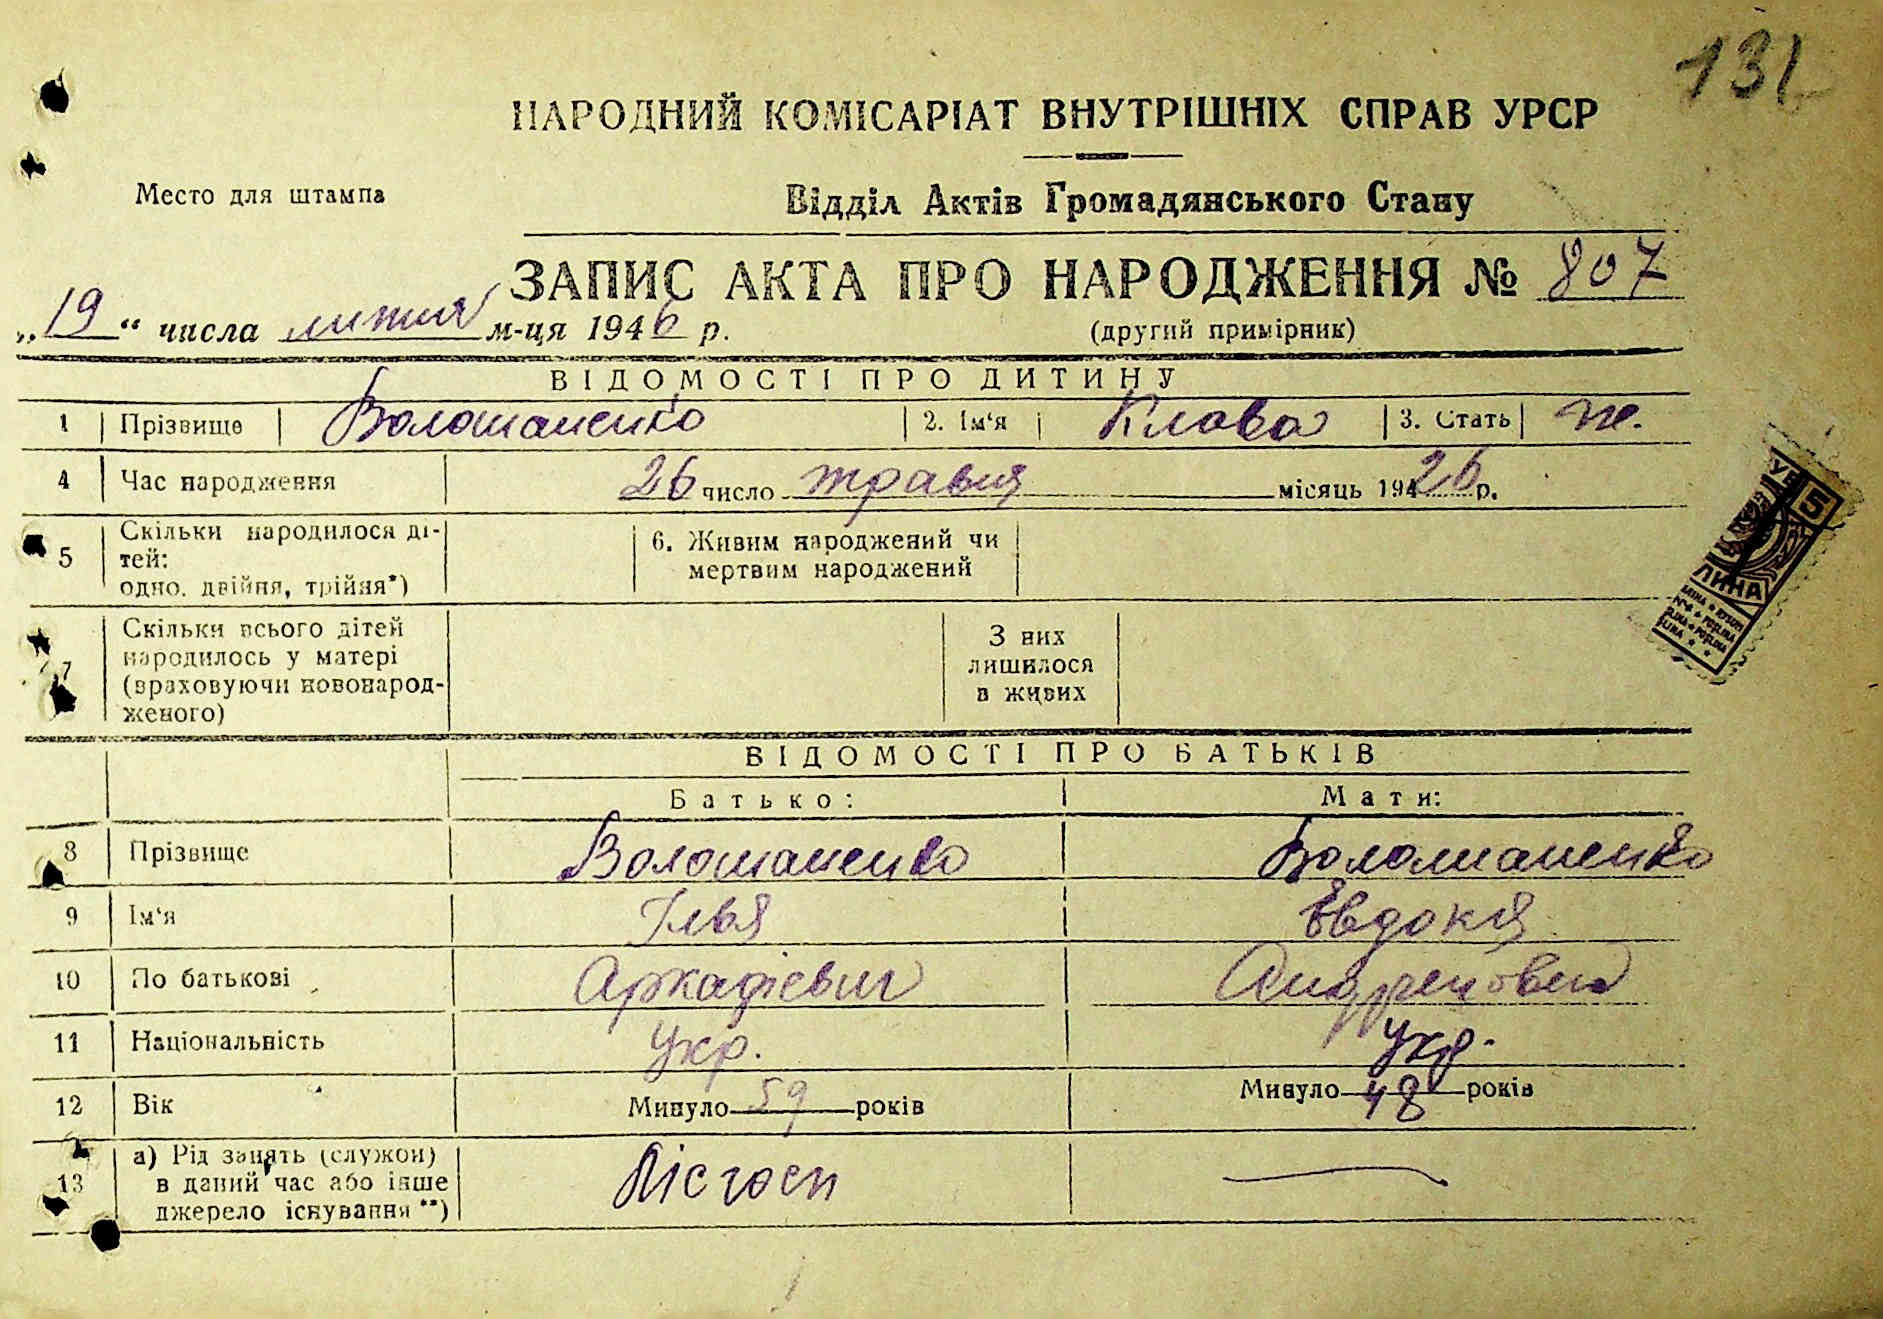 131
НАРОДНИЙ КОМІСАРІАТ ВНУТРІШНІХ СПРАВ УРСР
Место для штампа
Відділ Актів Громадянського Стану
ЗАПИС АКТА ПРО НАРОДЖЕННЯ № 807
„19“ числа липня м-ця 1946 р.
(другий примірник)
ВІДОМОСТІ ПРО ДИТИНУ
1 Прізвище Волошаненко 2. Ім‘я Клава 3. Стать ж.
4 Час народження 26 число травня місяць 1926 р.
5 Скільки народилося ді-
тей:
одно, двійня, трійня*)
6. Живим народжений чи
мертвим народжений
7 Скільки всього дітей
народилось у матері
(враховуючи новонарод-
женого)
З них
лишилося
в живих
ВІДОМОСТІ ПРО БАТЬКІВ
Батько: Мати:
8 Прізвище Волошаненко Волошаненко
9 Ім‘я Ілья Євдокія
10 По батькові Аркадієвич Андреповна
11 Національність Укр. Укр.
12 Вік Минуло 59 років Минуло 48 років
13 а) Рід занять (службои)
в даний час або інше
джерело існування **)
Лісгосп
5